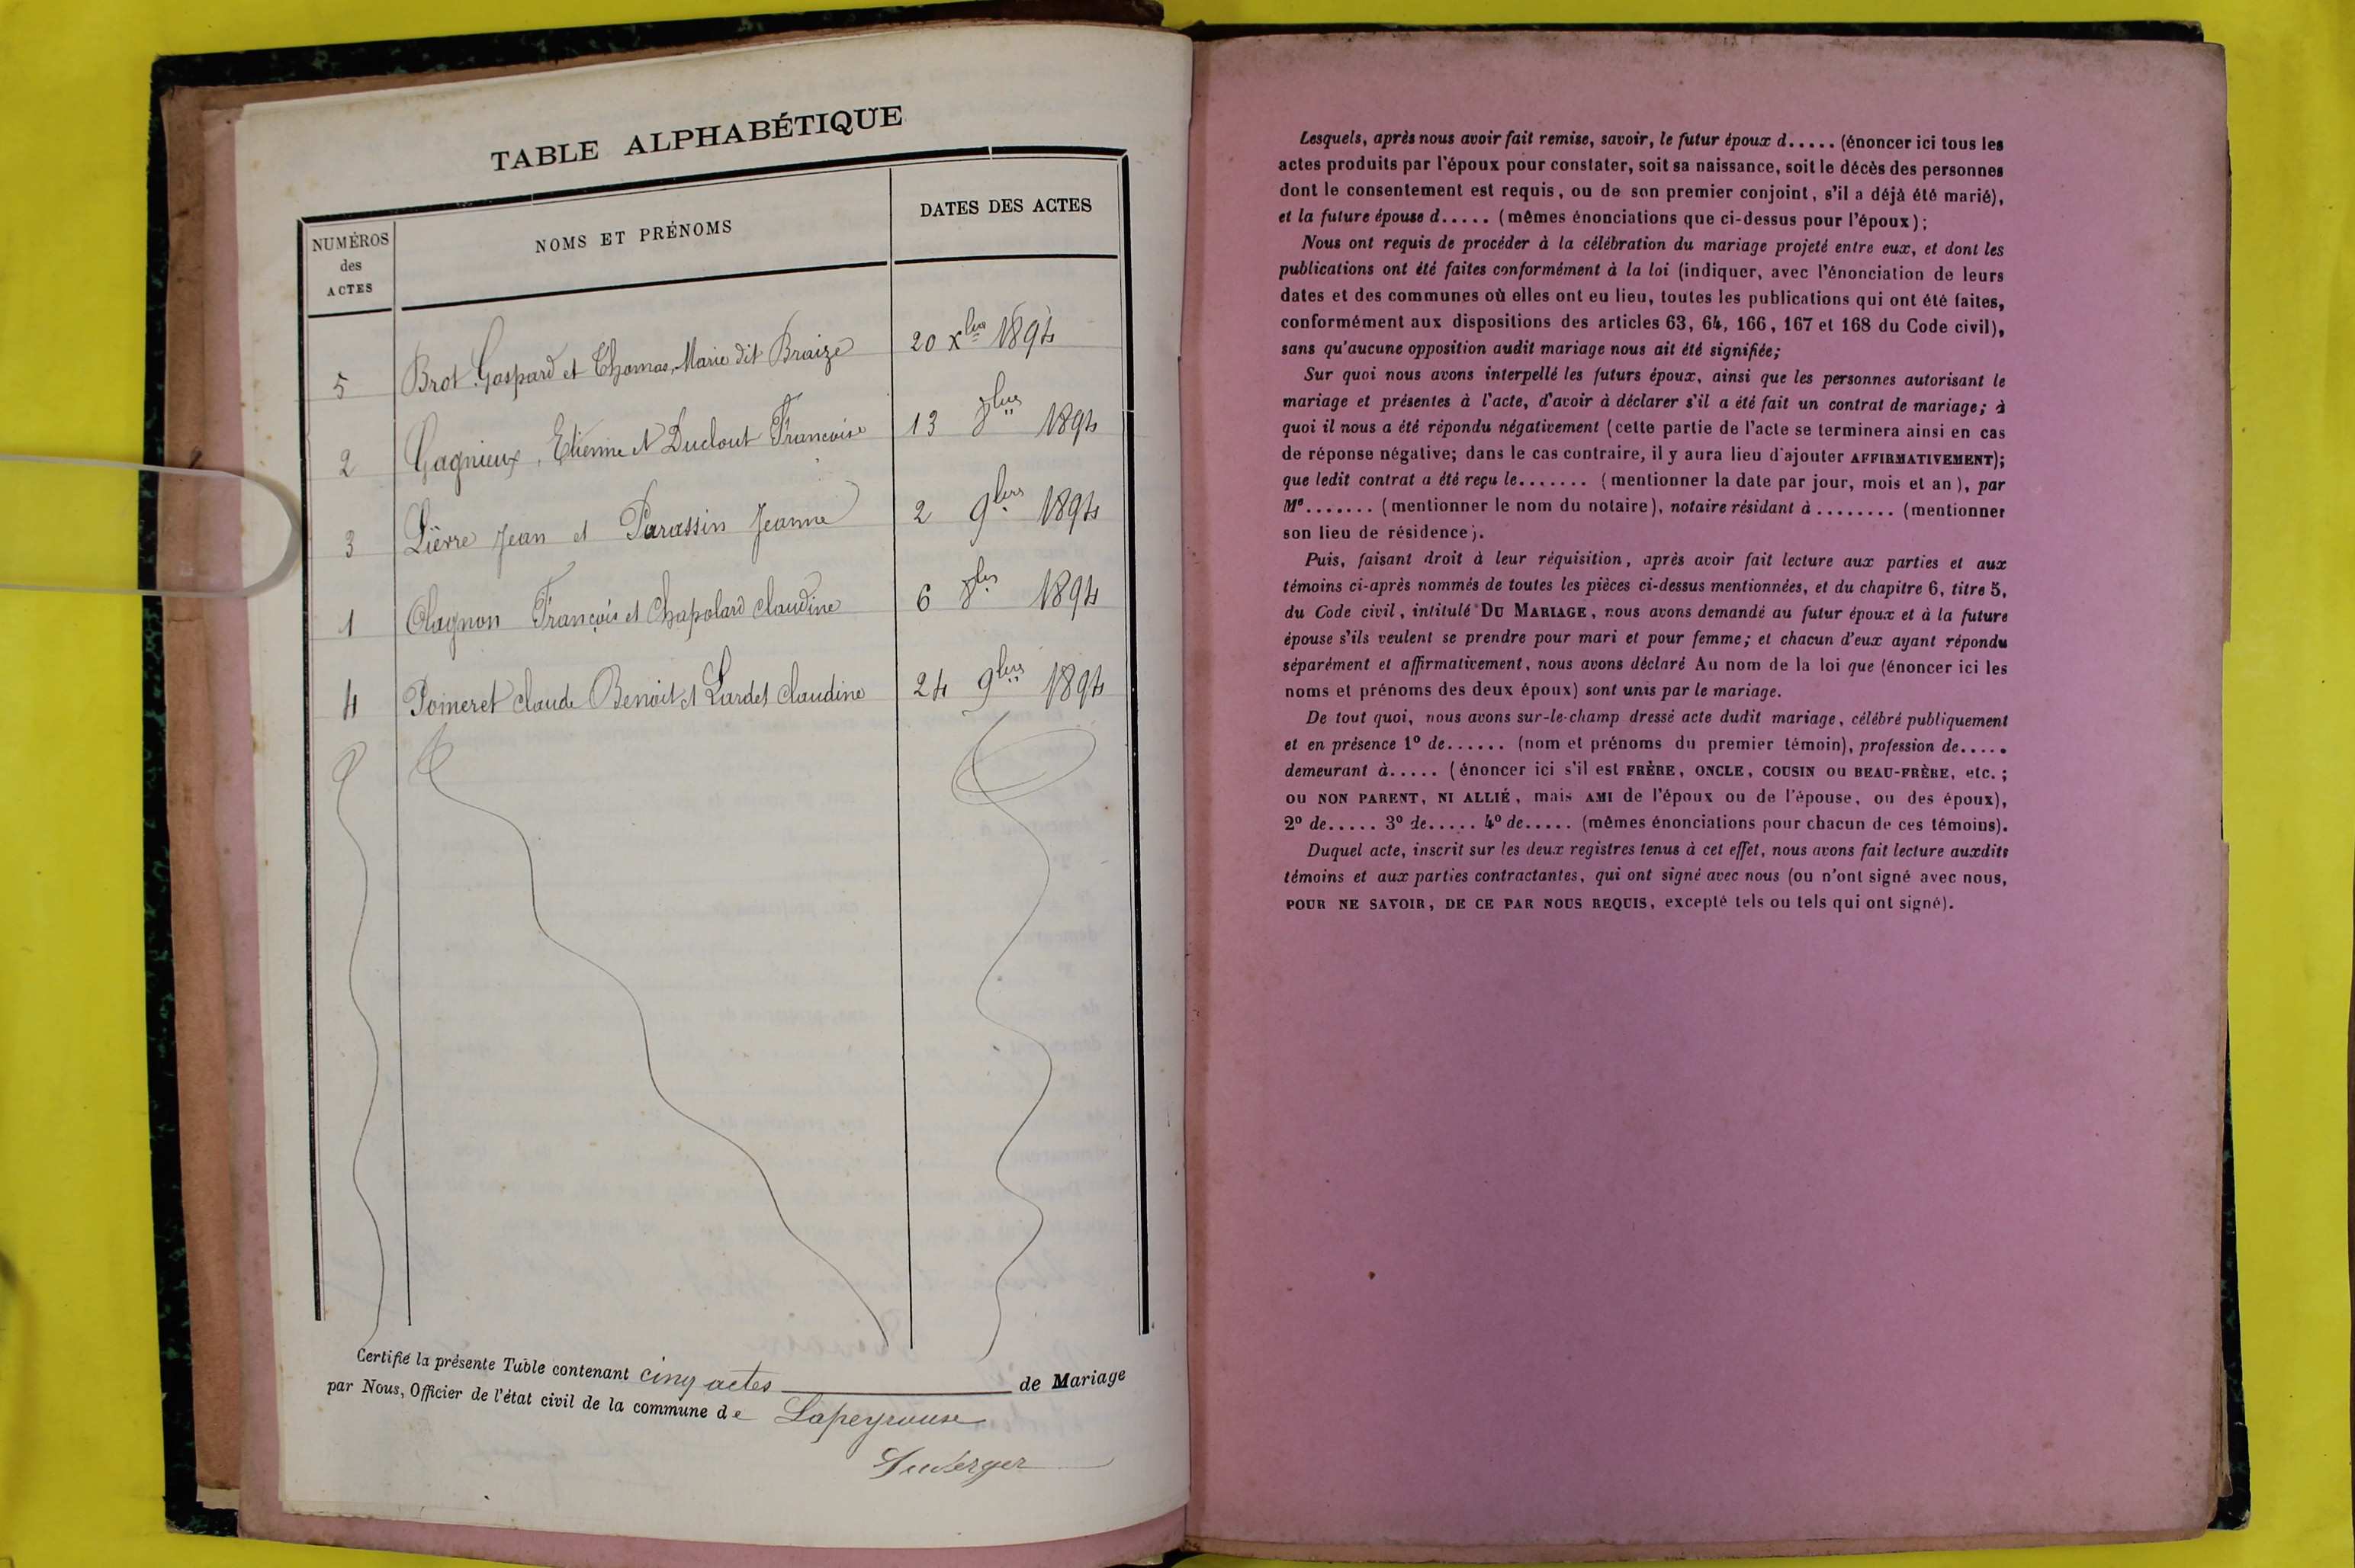 TABLE ALPHABÉTIQUE
NUMÉROS des ACTES
NOMS ET PRÉNOMS
DATES DES ACTES
5 Brot Gaspard et Thomas, Marie dit Braize 20 xbre 1894
2 Gagnieux, Etienne et Duclout Francoise 13 8bre 1894
3 Lièvre Jean et Parassin Jeanne 2 9bre 1894
1 Olagnon François et Chapolard Claudine 6 8bre 1894
4 Poineret Claude Benoit et Lardet Claudine 24 9bre 1894
Certifié la présente Table contenant cinq actes de Mariage
par Nous, Officier de l'état civil de la commune de Lapeyrouse
Lesquels, après nous avoir fait remise, savoir, le futur époux d..... (énoncer ici tous les
actes produits par l'époux pour constater, soit sa naissance, soit le décès des personnes
dont le consentement est requis, ou de son premier conjoint, s'il a déjà été marié),
et la future épouse d..... (mêmes énonciations que ci-dessus pour l'époux);
Nous ont requis de procéder à la célébration du mariage projeté entre eux, et dont les
publications ont été faites conformément à la loi (indiquer, avec l'énonciation de leurs
dates et des communes où elles ont eu lieu, toutes les publications qui ont été faites,
conformément aux dispositions des articles 63, 64, 166, 167 et 168 du Code civil),
sans qu'aucune opposition audit mariage nous ait été signifiée;
Sur quoi nous avons interpellé les futurs époux, ainsi que les personnes autorisant le
mariage et présentes à l'acte, d'avoir à déclarer s'il a été fait un contrat de mariage; à
quoi il nous a été répondu négativement (cette partie de l'acte se terminera ainsi en cas
de réponse négative; dans le cas contraire, il y aura lieu d'ajouter AFFIRMATIVEMENT);
que ledit contrat a été reçu le....... (mentionner la date par jour, mois et an), par
Me....... (mentionner le nom du notaire), notaire résidant à ........ (mentionner
son lieu de résidence).
Puis, faisant droit à leur réquisition, après avoir fait lecture aux parties et aux
témoins ci-après nommés de toutes les pièces ci-dessus mentionnées, et du chapitre 6, titre 5,
du Code civil, intitulé DU MARIAGE, nous avons demandé au futur époux et à la future
épouse s'ils veulent se prendre pour mari et pour femme; et chacun d'eux ayant répondu
séparément et affirmativement, nous avons déclaré Au nom de la loi que (énoncer ici les
noms et prénoms des deux époux) sont unis par le mariage.
De tout quoi, nous avons sur-le-champ dressé acte dudit mariage, célébré publiquement
et en présence 1º de...... (nom et prénoms du premier témoin), profession de.....
demeurant à..... (énoncer ici s'il est FRÈRE, ONCLE, COUSIN ou BEAU-FRÈRE, etc.;
ou NON PARENT, NI ALLIÉ, mais AMI de l'époux ou de l'épouse, ou des époux),
2º de..... 3º de..... 4º de..... (mêmes énonciations pour chacun de ces témoins).
Duquel acte, inscrit sur les deux registres tenus à cet effet, nous avons fait lecture auxdits
témoins et aux parties contractantes, qui ont signé avec nous (ou n'ont signé avec nous,
POUR NE SAVOIR, DE CE PAR NOUS REQUIS, excepté tels ou tels qui ont signé).